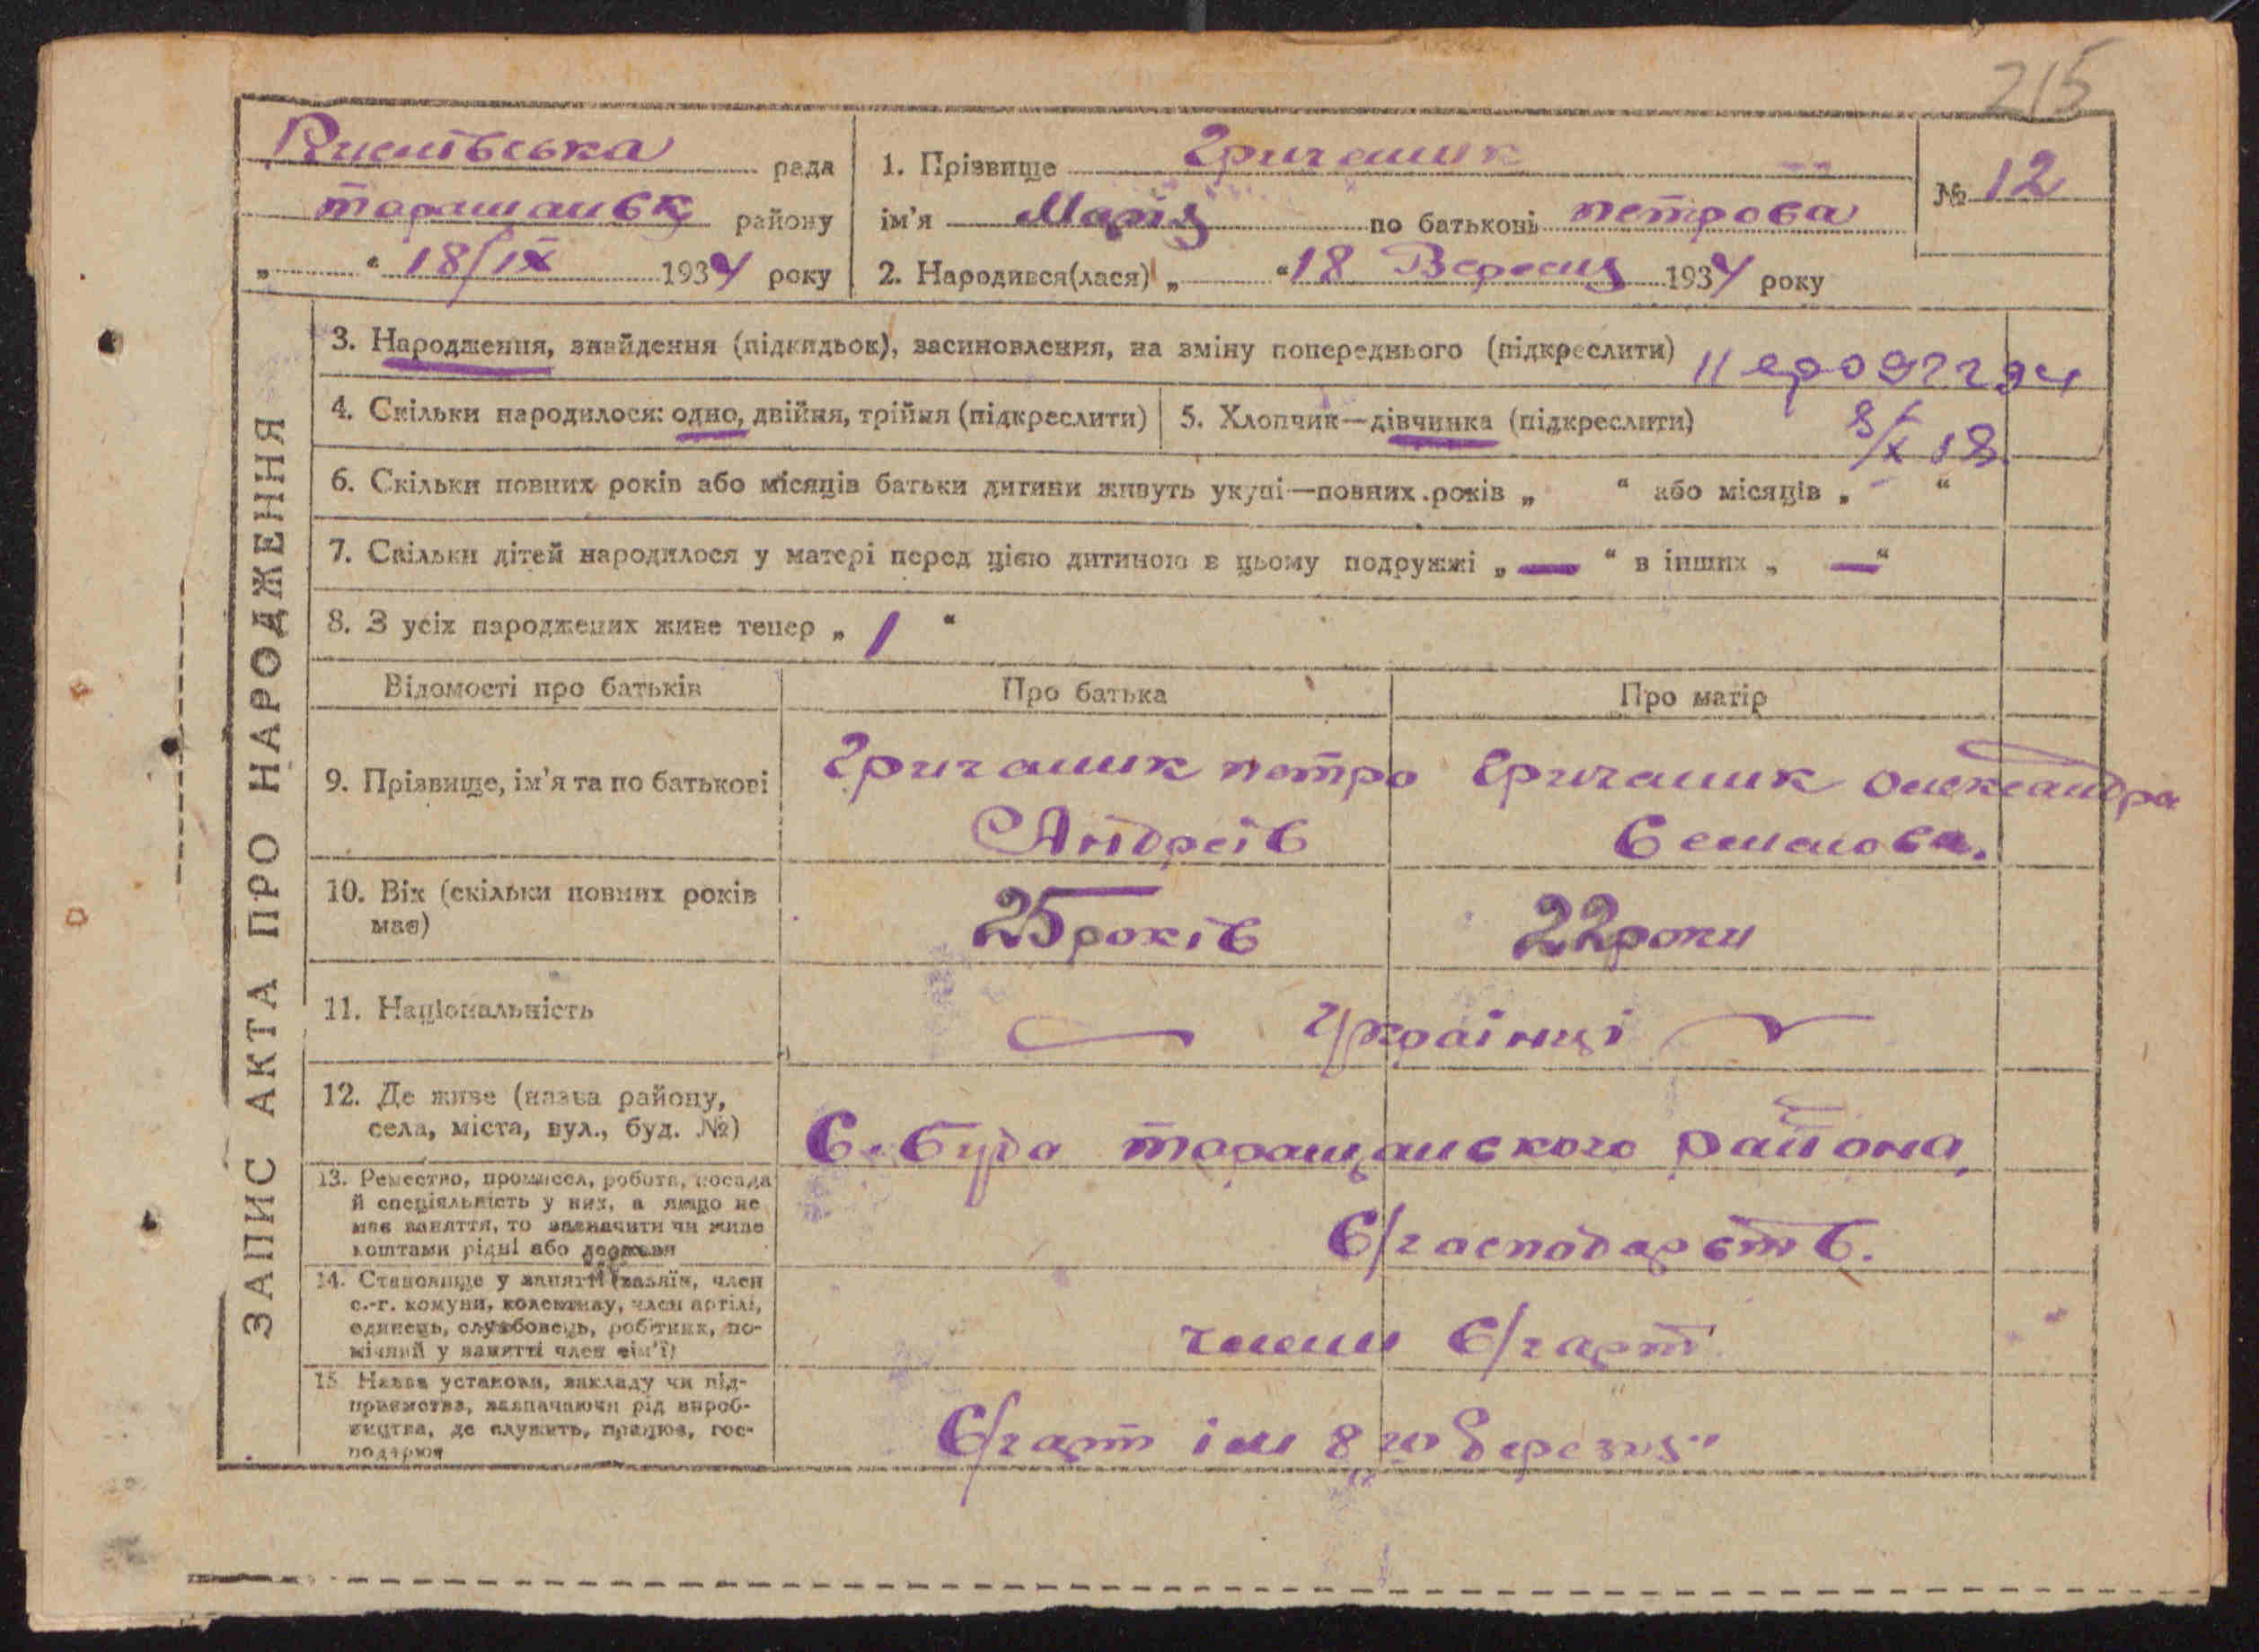 215
рада
таращанськ району
„ “ 18/IX 1934 року
1. Прізвище Гричаник
ім'я Марія по батькові петрова
2. Народився(лася) „ “ 18 Вересня 1934 року
№ 12
ЗАПИС АКТА ПРО НАРОДЖЕННЯ
3. Народження, знайдення (підкидьок), засиновлення, на зміну попереднього (підкреслити)
4. Скільки народилося: одно, двійня, трійня (підкреслити)
5. Хлопчик—дівчинка (підкреслити)
6. Скільки повних років або місяців батьки дитини живуть укупі—повних років „ “ або місяців „ “
7. Скільки дітей народилося у матері перед цією дитиною в цьому подружжі „ — “ в інших „ — “
8. З усіх народжених живе тепер „ 1 “
Відомості про батьків
Про батька
Про матір
9. Прізвище, ім'я та по батькові
Гричаник петро
Андреїв
Гричаник Олександра
Семенова.
10. Вік (скільки повних років
має)
25 років
22 роки
11. Національність
Українці
12. Де живе (назва району,
села, міста, вул., буд. №)
С. Буда таращанского района,
13. Ремество, промисел, робота, посада
й спеціяльність у них, а якщо не
має заняття, то зазначити чи живе
коштами рідні або держави
С/господарств.
14. Становище у занятті (хазяїн, член
с.-г. комуни, колективу, член артілі,
одинець, службовець, робітник, по-
мічний у занятті член сім'ї)
члени С/г арт
15 Назва установи, закладу чи під-
приємства, зазначаючи рід вироб-
ництва, де служить, працює, гос-
подарює
С/г арт ім 8 го березня"